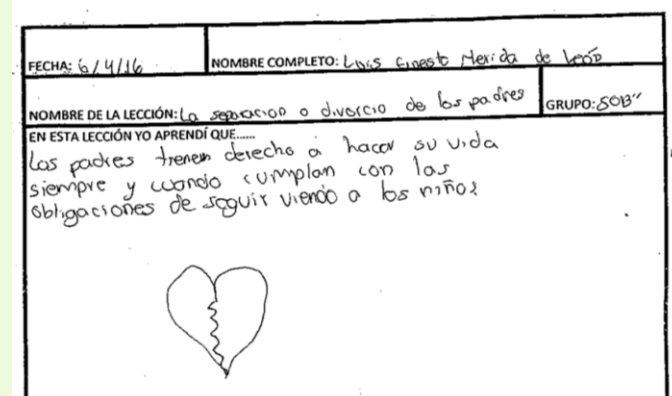 FECHA: 6/4/16
NOMBRE COMPLETO: Luis Ernesto Merida de León
NOMBRE DE LA LECCIÓN: La separacion o divorcio de los padres
GRUPO: 5OB"
EN ESTA LECCIÓN YO APRENDÍ QUE......
Los padres tienen derecho a hacer su vida
siempre y cuando cumplan con las
obligaciones de seguir viendo a los niños